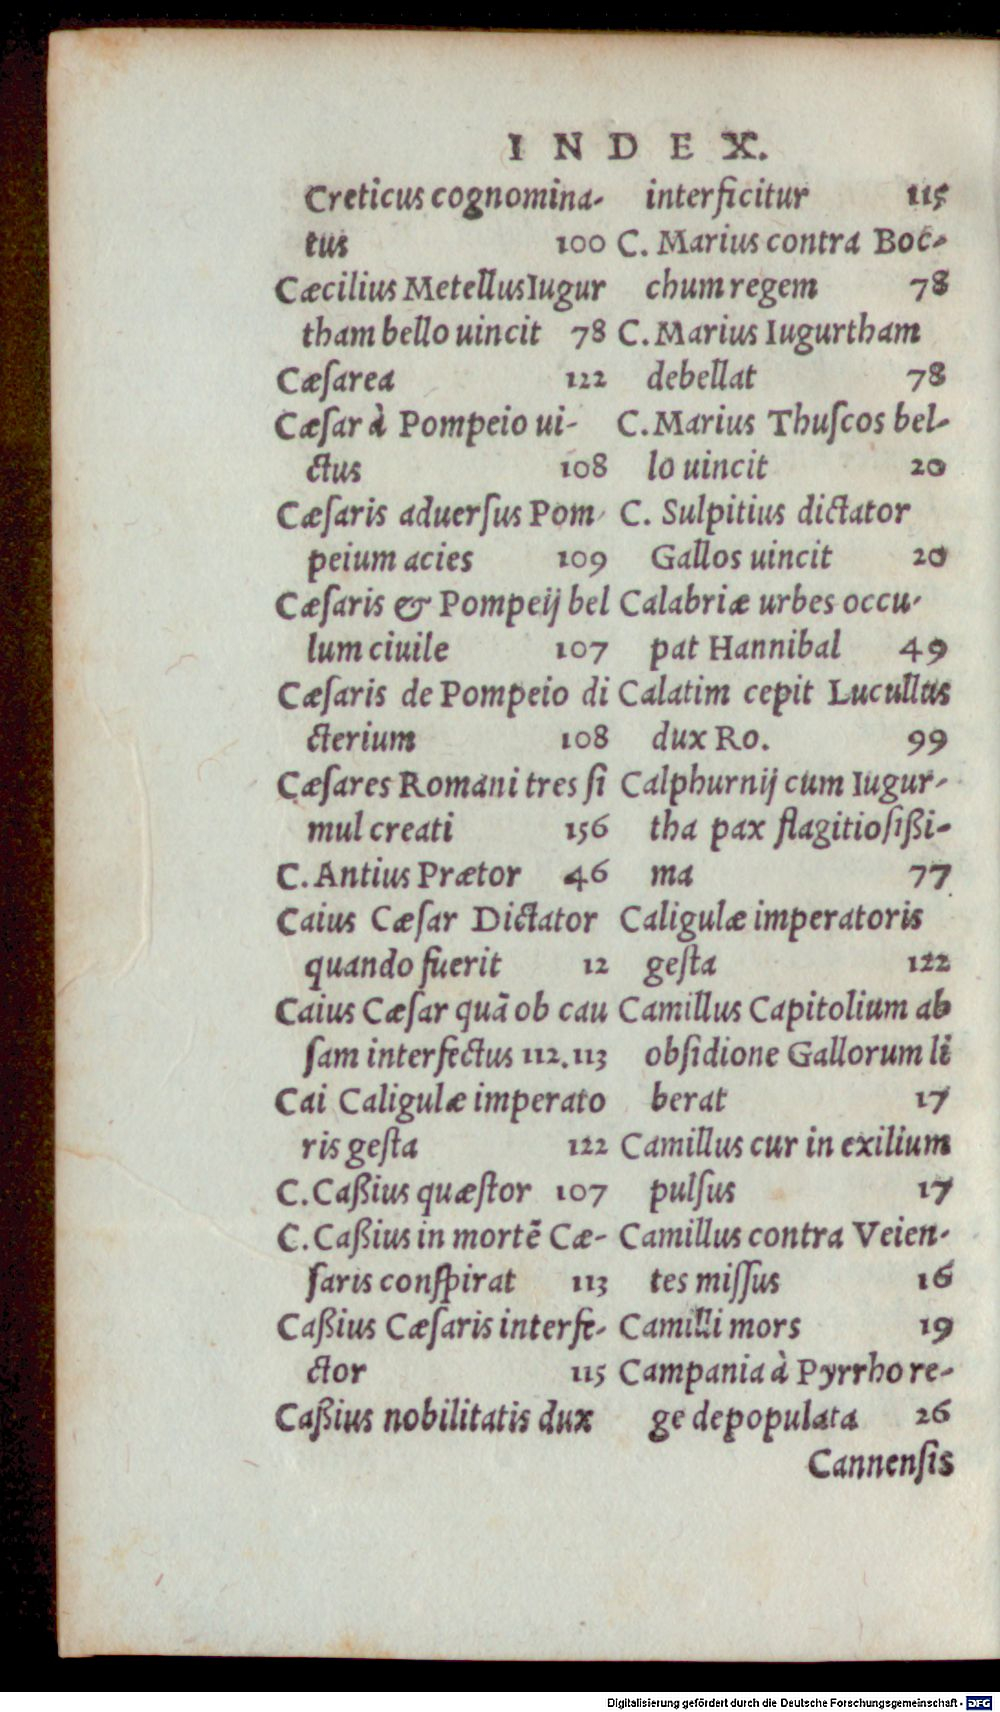 INDEX.
Creticus cognomina-
tus 100
Cæcilius Metellus Iugur
tham bello uincit 78
Cæſarea 122
Cæſar à Pompeio ui-
ctus 108
Cæſaris aduerſus Pom-
peium acies 109
Cæſaris & Pompeij bel
lum ciuile 107
Cæſaris de Pompeio di
cterium 108
Cæſares Romani tres ſi
mul creati 156
C. Antius Prætor 46
Caius Cæſar Dictator
quando fuerit 12
Caius Cæſar quā ob cau
ſam interfectus 112.113
Cai Caligulæ imperato
ris geſta 122
C. Caßius quæſtor 107
C. Caßius in mortē Cæ-
ſaris conſpirat 113
Caßius Cæſaris interfe-
ctor 115
Caßius nobilitatis dux
interficitur 115
C. Marius contra Boc-
chum regem 78
C. Marius Iugurtham
debellat 78
C. Marius Thuſcos bel-
lo uincit 20
C. Sulpitius dictator
Gallos uincit 20
Calabriæ urbes occu-
pat Hannibal 49
Calatim cepit Lucullus
dux Ro. 99
Calphurnij cum Iugur-
tha pax flagitioſißi-
ma 77
Caligulæ imperatoris
geſta 122
Camillus Capitolium ab
obſidione Gallorum li
berat 17
Camillus cur in exilium
pulſus 17
Camillus contra Veien-
tes miſſus 16
Camilli mors 19
Campania à Pyrrho re-
ge depopulata 26
Cannenſis
Digitalisierung gefördert durch die Deutsche Forschungsgemeinschaft - DFG